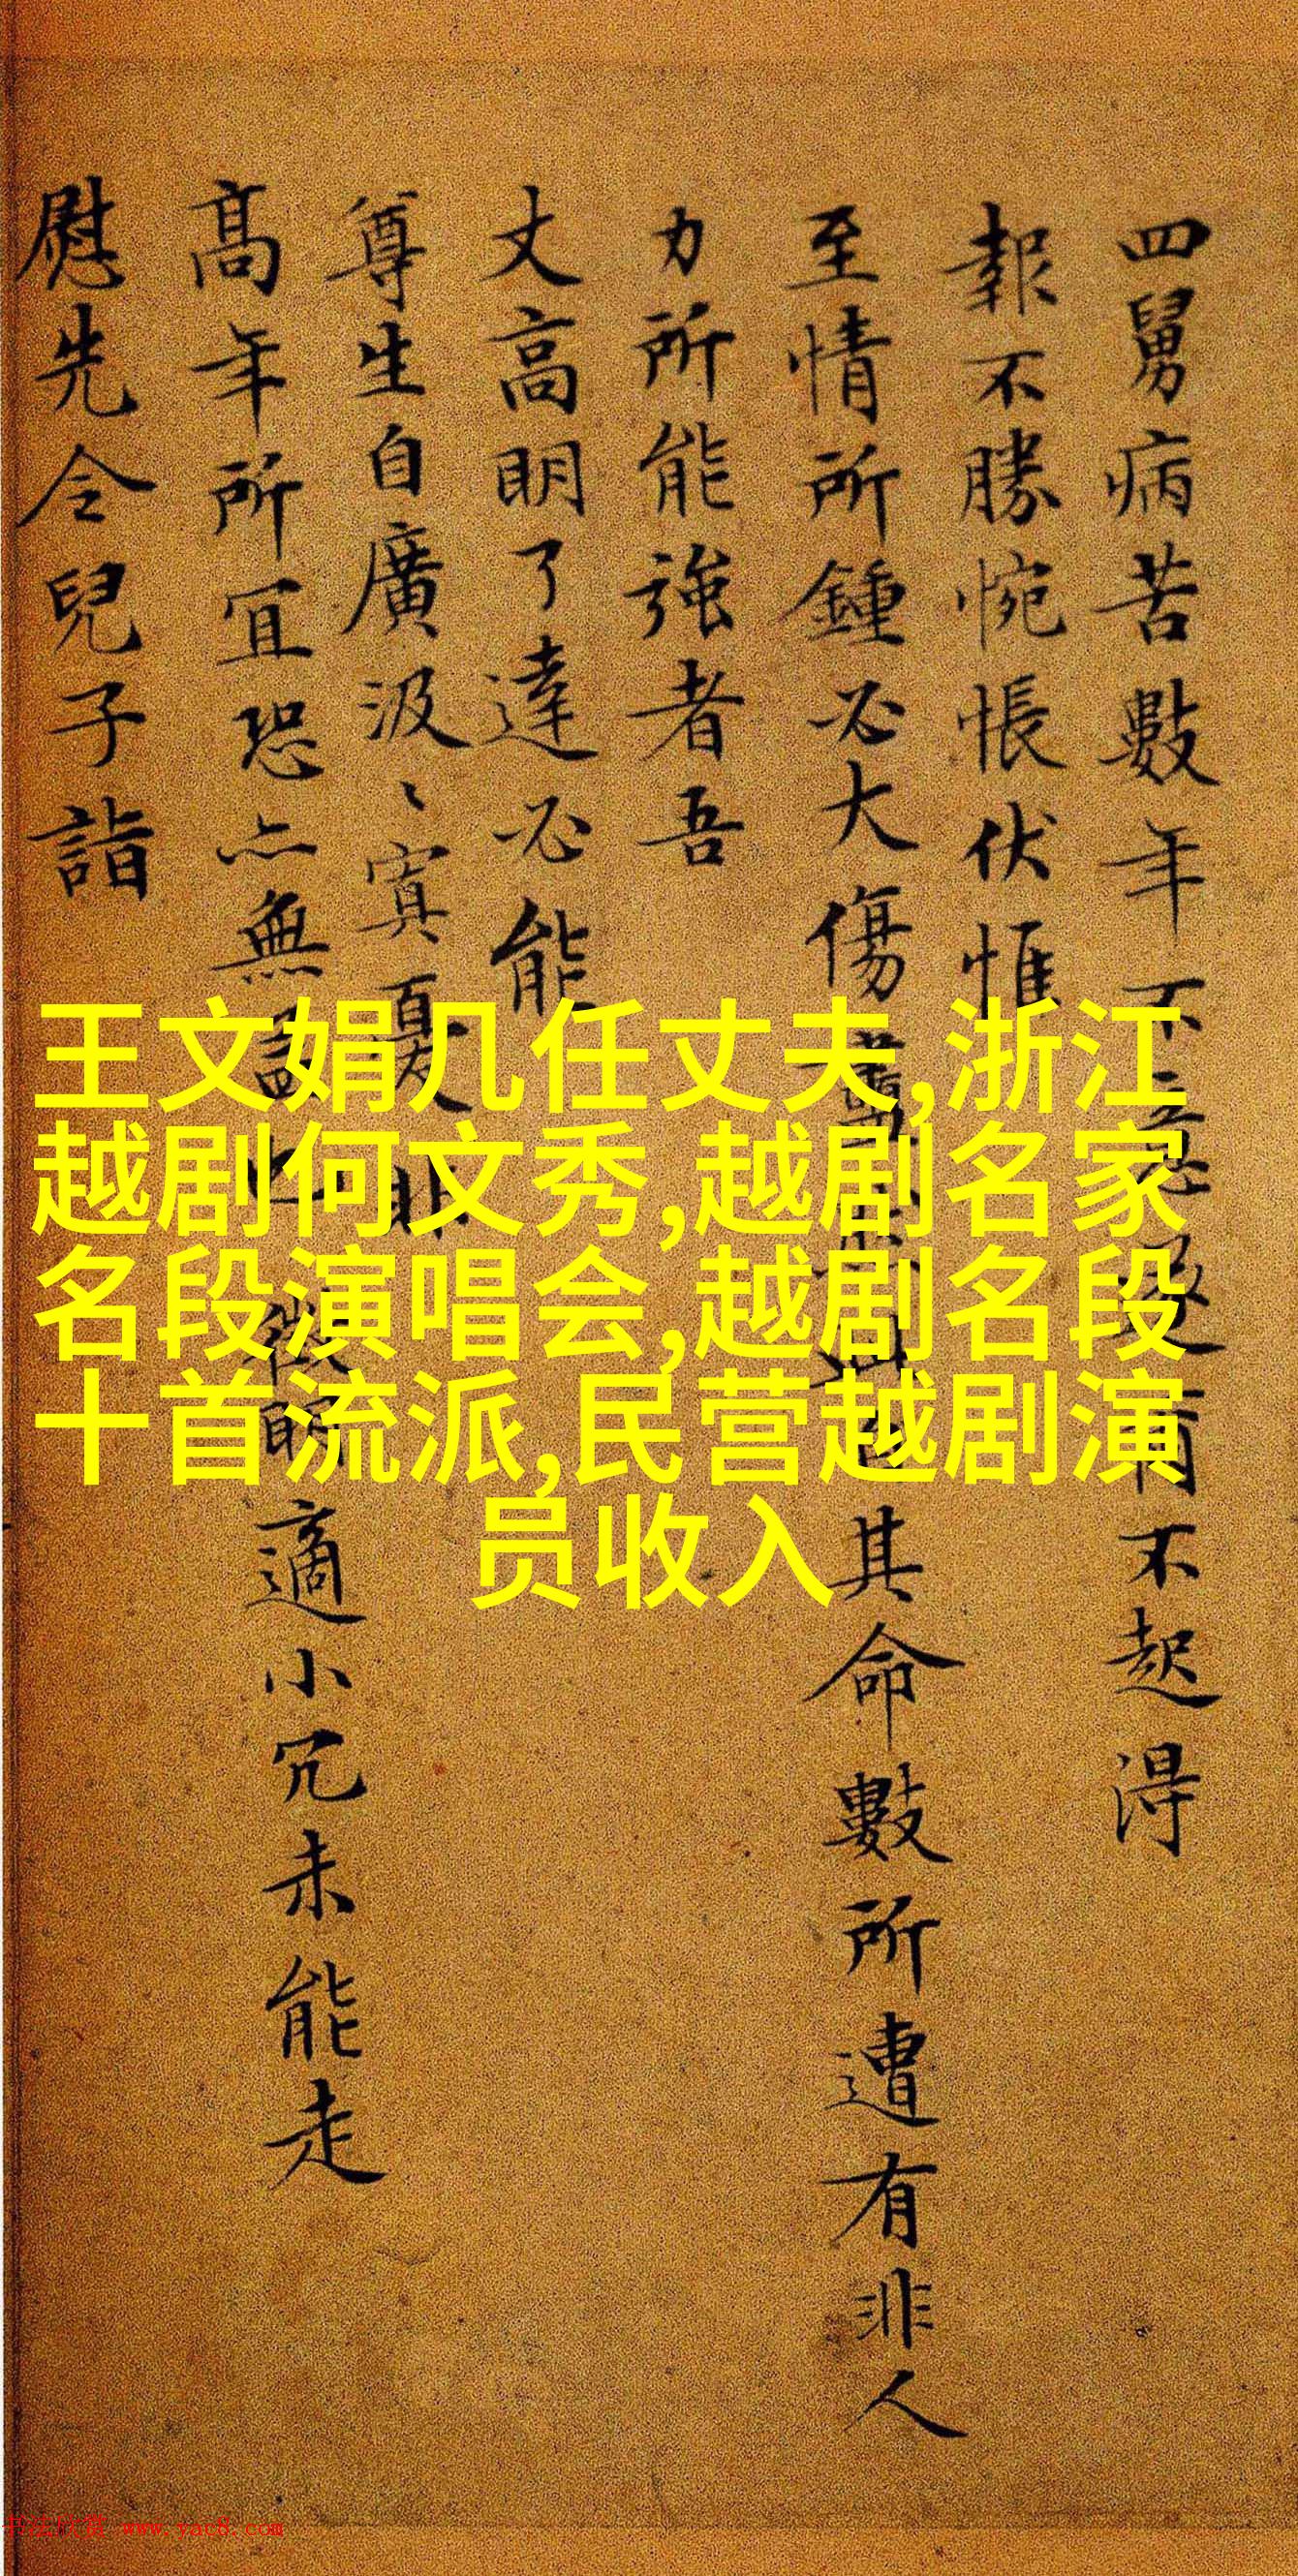 四舅病苦數年不
有不起得
報不勝惋悵伏惟
至情所鍾必大傷
其命數所遭有非人
力所能強者吾
丈高明了達必能
尊生自廣汲〻寘
高年所宜恐亦無
適小冗未能走
慰先令兒子詣
王文娟几任丈夫,浙江
越剧何文秀,越剧名家
名段演唱会,越剧名段
十首流派,民营越剧演
员收入
书法欣赏 www.yac8.com